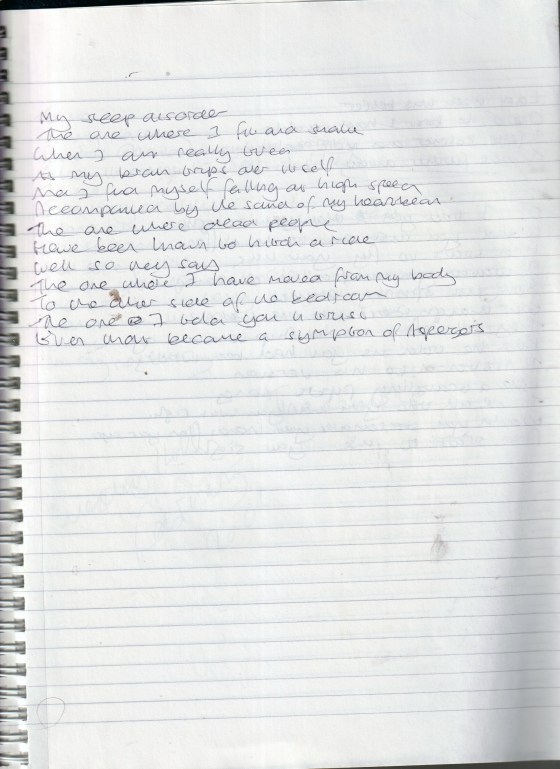 My sleep disorder
The one where I fit and shake
When I am really tired
As my brain trips over itself
And I find myself falling at high speed
Accompanied by the sound of my heartbeat
The one where dead people
Have been known to hitch a ride
Well so they say
The one where I have moved from my body
To the other side of the bedroom
The one I told you in trust
Even that became a symptom of Aspergers